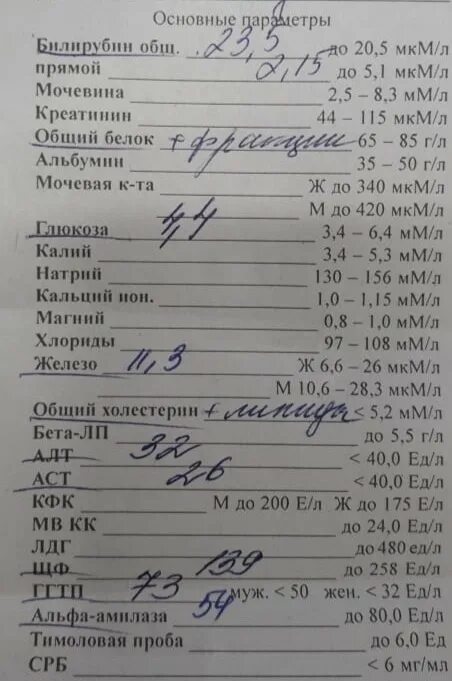 Основные параметры
Билирубин общ. 23,5 до 20,5 мкМ/л
прямой 2,15 до 5,1 мкМ/л
Мочевина 2,5 – 8,3 мМ/л
Креатинин 44 – 115 мкМ/л
Общий белок + фракции 65 – 85 г/л
Альбумин 35 – 50 г/л
Мочевая к-та Ж до 340 мкМ/л
М до 420 мкМ/л
Глюкоза 4,4 3,4 – 6,4 мМ/л
Калий 3,4 – 5,3 мМ/л
Натрий 130 – 156 мМ/л
Кальций ион. 1,0 – 1,15 мМ/л
Магний 0,8 – 1,0 мМ/л
Хлориды 97 – 108 мМ/л
Железо 11,3 Ж 6,6 – 26 мкМ/л
М 10,6 – 28,3 мкМ/л
Общий холестерин + липиды < 5,2 мМ/л
Бета-ЛП до 5,5 г/л
АЛТ 32 < 40,0 Ед/л
АСТ 26 < 40,0 Ед/л
КФК М до 200 Е/л Ж до 175 Е/л
МВ КК до 24,0 Ед/л
ЛДГ до 480 ед/л
ЩФ 139 до 258 Ед/л
ГГТП 73 муж. < 50 жен. < 32 Ед/л
Альфа-амилаза 54 до 80,0 Ед/л
Тимоловая проба до 6,0 Ед
СРБ < 6 мг/мл